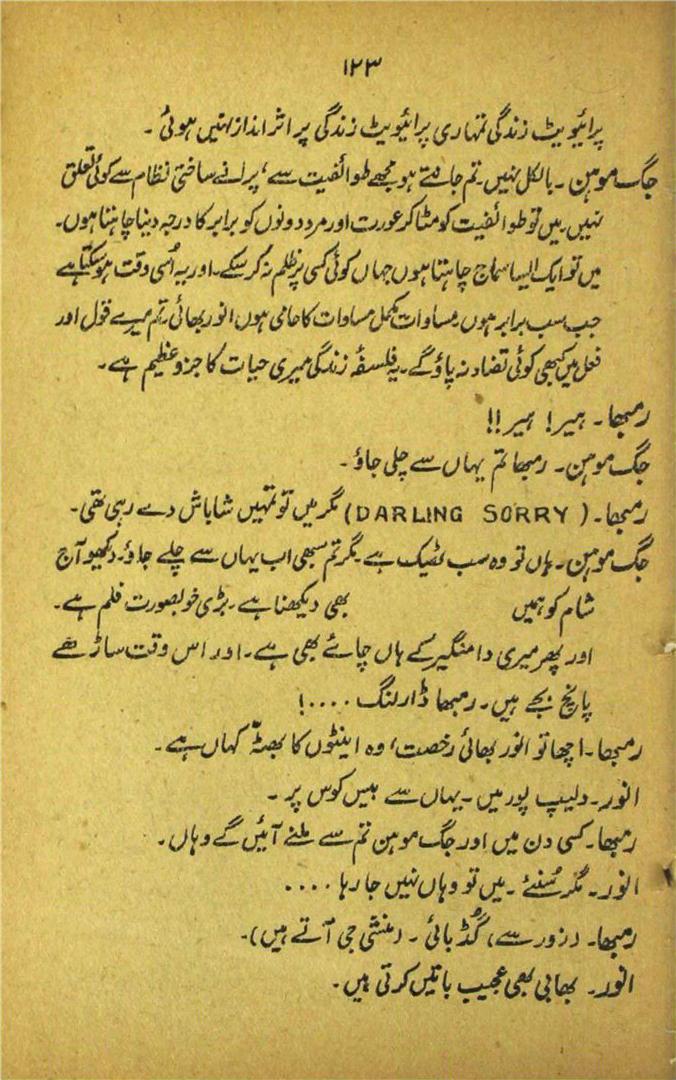 ۱۲۳
پرائیویٹ زندگی تمہاری پرائیویٹ زندگی پر اثر انداز نہیں ہوئی ۔
جگ موہن ۔ بالکل نہیں ۔ تم جانتے ہو مجھے طوائفیت سے، پرانے ساختی نظام سے کوئی تعلق
نہیں ۔ میں تو طوائفیت کو مٹا کر عورت اور مرد دونوں کو برابر کا درجہ دینا چاہتا ہوں۔
میں تو ایک ایسا سماج چاہتا ہوں جہاں کوئی کسی پر ظلم نہ کر سکے۔ اور یہ اُسی وقت ہو سکتا ہے
جب سب برابر ہوں۔ مساوات مکمل مساوات کا حامی ہوں انور بھائی۔ تم میرے قول اور
فعل میں کبھی کوئی تضاد نہ پاؤ گے۔ یہ فلسفۂ زندگی میری حیات کا جزوِ عظیم ہے۔
رمبھا ۔ ہیر! ہیر!!
جگ موہن۔ رمبھا تم یہاں سے چلی جاؤ ۔
رمبھا۔ (DARLING SORRY) مگر میں تو تمہیں شاباش دے رہی تھی۔
جگ موہن۔ ہاں تو وہ سب ٹھیک ہے۔ مگر تم سبھی اب یہاں سے چلے جاؤ۔ دیکھو آج
شام کو ہمیں بھی دیکھنا ہے۔ بڑی خوبصورت فلم ہے۔
اور پھر میری دامنگیر کے ہاں چائے بھی ہے۔ اور اس وقت ساڑھے
پانچ بجے ہیں۔ رمبھا ڈارلنگ ....!
رمبھا۔ اچھا تو انور بھائی رخصت، وہ اینٹوں کا بھٹّہ کہاں ہے۔
انور۔ دلیپ پور میں ۔ یہاں سے بیس کوس پر ۔
رمبھا۔ کسی دن میں اور جگ موہن تم سے ملنے آئیں گے وہاں۔
انور۔ مگر سُنئے ۔ میں تو وہاں نہیں جا رہا ....
رمبھا۔ (زور سے) گُڈ بائی ۔ (منشی جی آتے ہیں)۔
انور۔ بھابی بھی عجیب باتیں کرتی ہیں۔